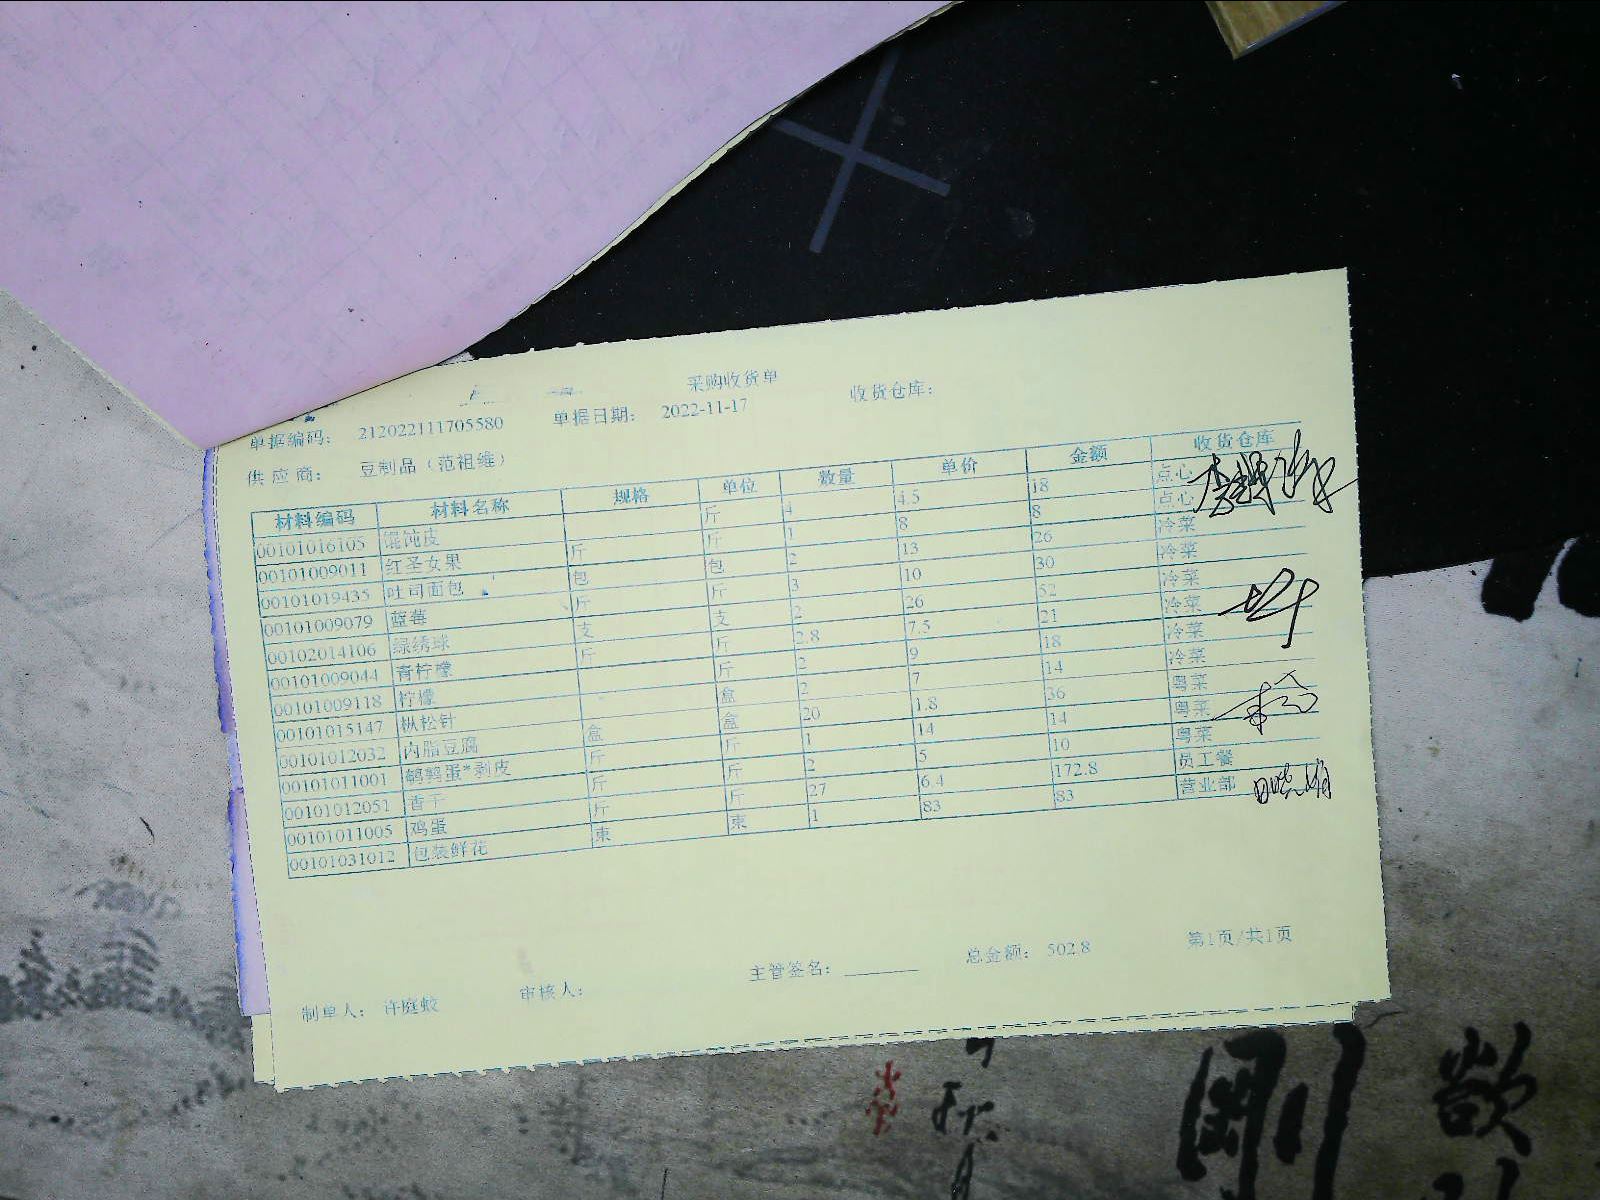 采购收货单
单据编码： 212022111705580 单据日期： 2022-11-17 收货仓库：
供应商： 豆制品（范祖维）
材料编码 材料名称 规格 单位 数量 单价 金额 收货仓库
00101016105 馄饨皮 斤 4 4.5 18 点心
00101009011 红圣女果 斤 斤 1 8 8 点心
00101019435 吐司面包 包 包 2 13 26 冷菜
00101009079 蓝莓 斤 斤 3 10 30 冷菜
00102014106 绿绣球 支 支 2 26 52 冷菜
00101009044 青柠檬 斤 斤 2.8 7.5 21 冷菜
00101009118 柠檬 斤 2 9 18 冷菜
00101015147 枞松针 盒 2 7 14 冷菜
00101012032 内脂豆腐 盒 盒 20 1.8 36 粤菜
00101011001 鹌鹑蛋*剥皮 斤 斤 1 14 14 粤菜
00101012051 香干 斤 斤 2 5 10 粤菜
00101011005 鸡蛋 斤 斤 27 6.4 172.8 员工餐
00101031012 包装鲜花 束 束 1 83 83 营业部
制单人： 许庭蛟 审核人： 主管签名： 总金额： 502.8 第1页/共1页